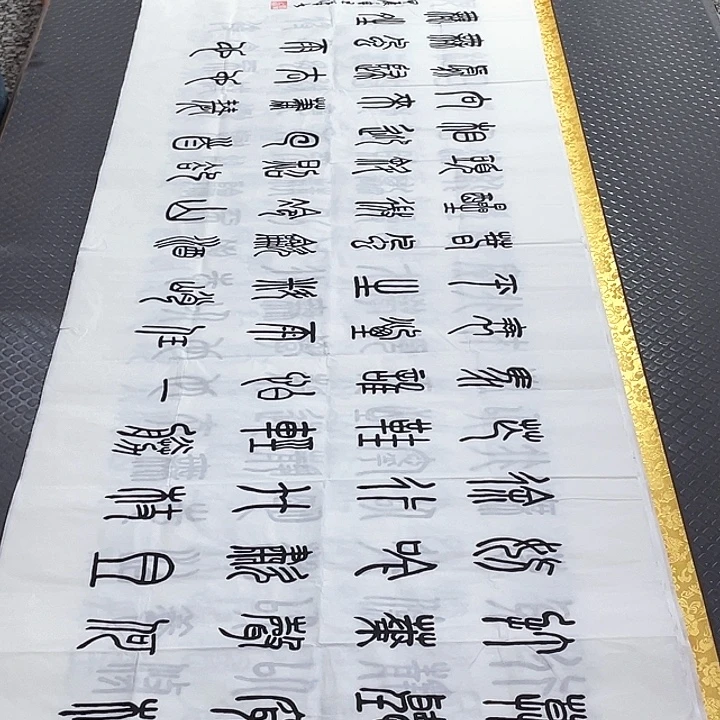 莫聽穿林
打葉聲何
妨吟嘯且
徐行竹杖
芒鞋輕勝
馬誰怕一
蓑煙雨任
平生料峭
春風吹酒
醒微冷山
頭斜照卻
相迎回首
向來蕭瑟
處歸去也
無風雨也
無晴